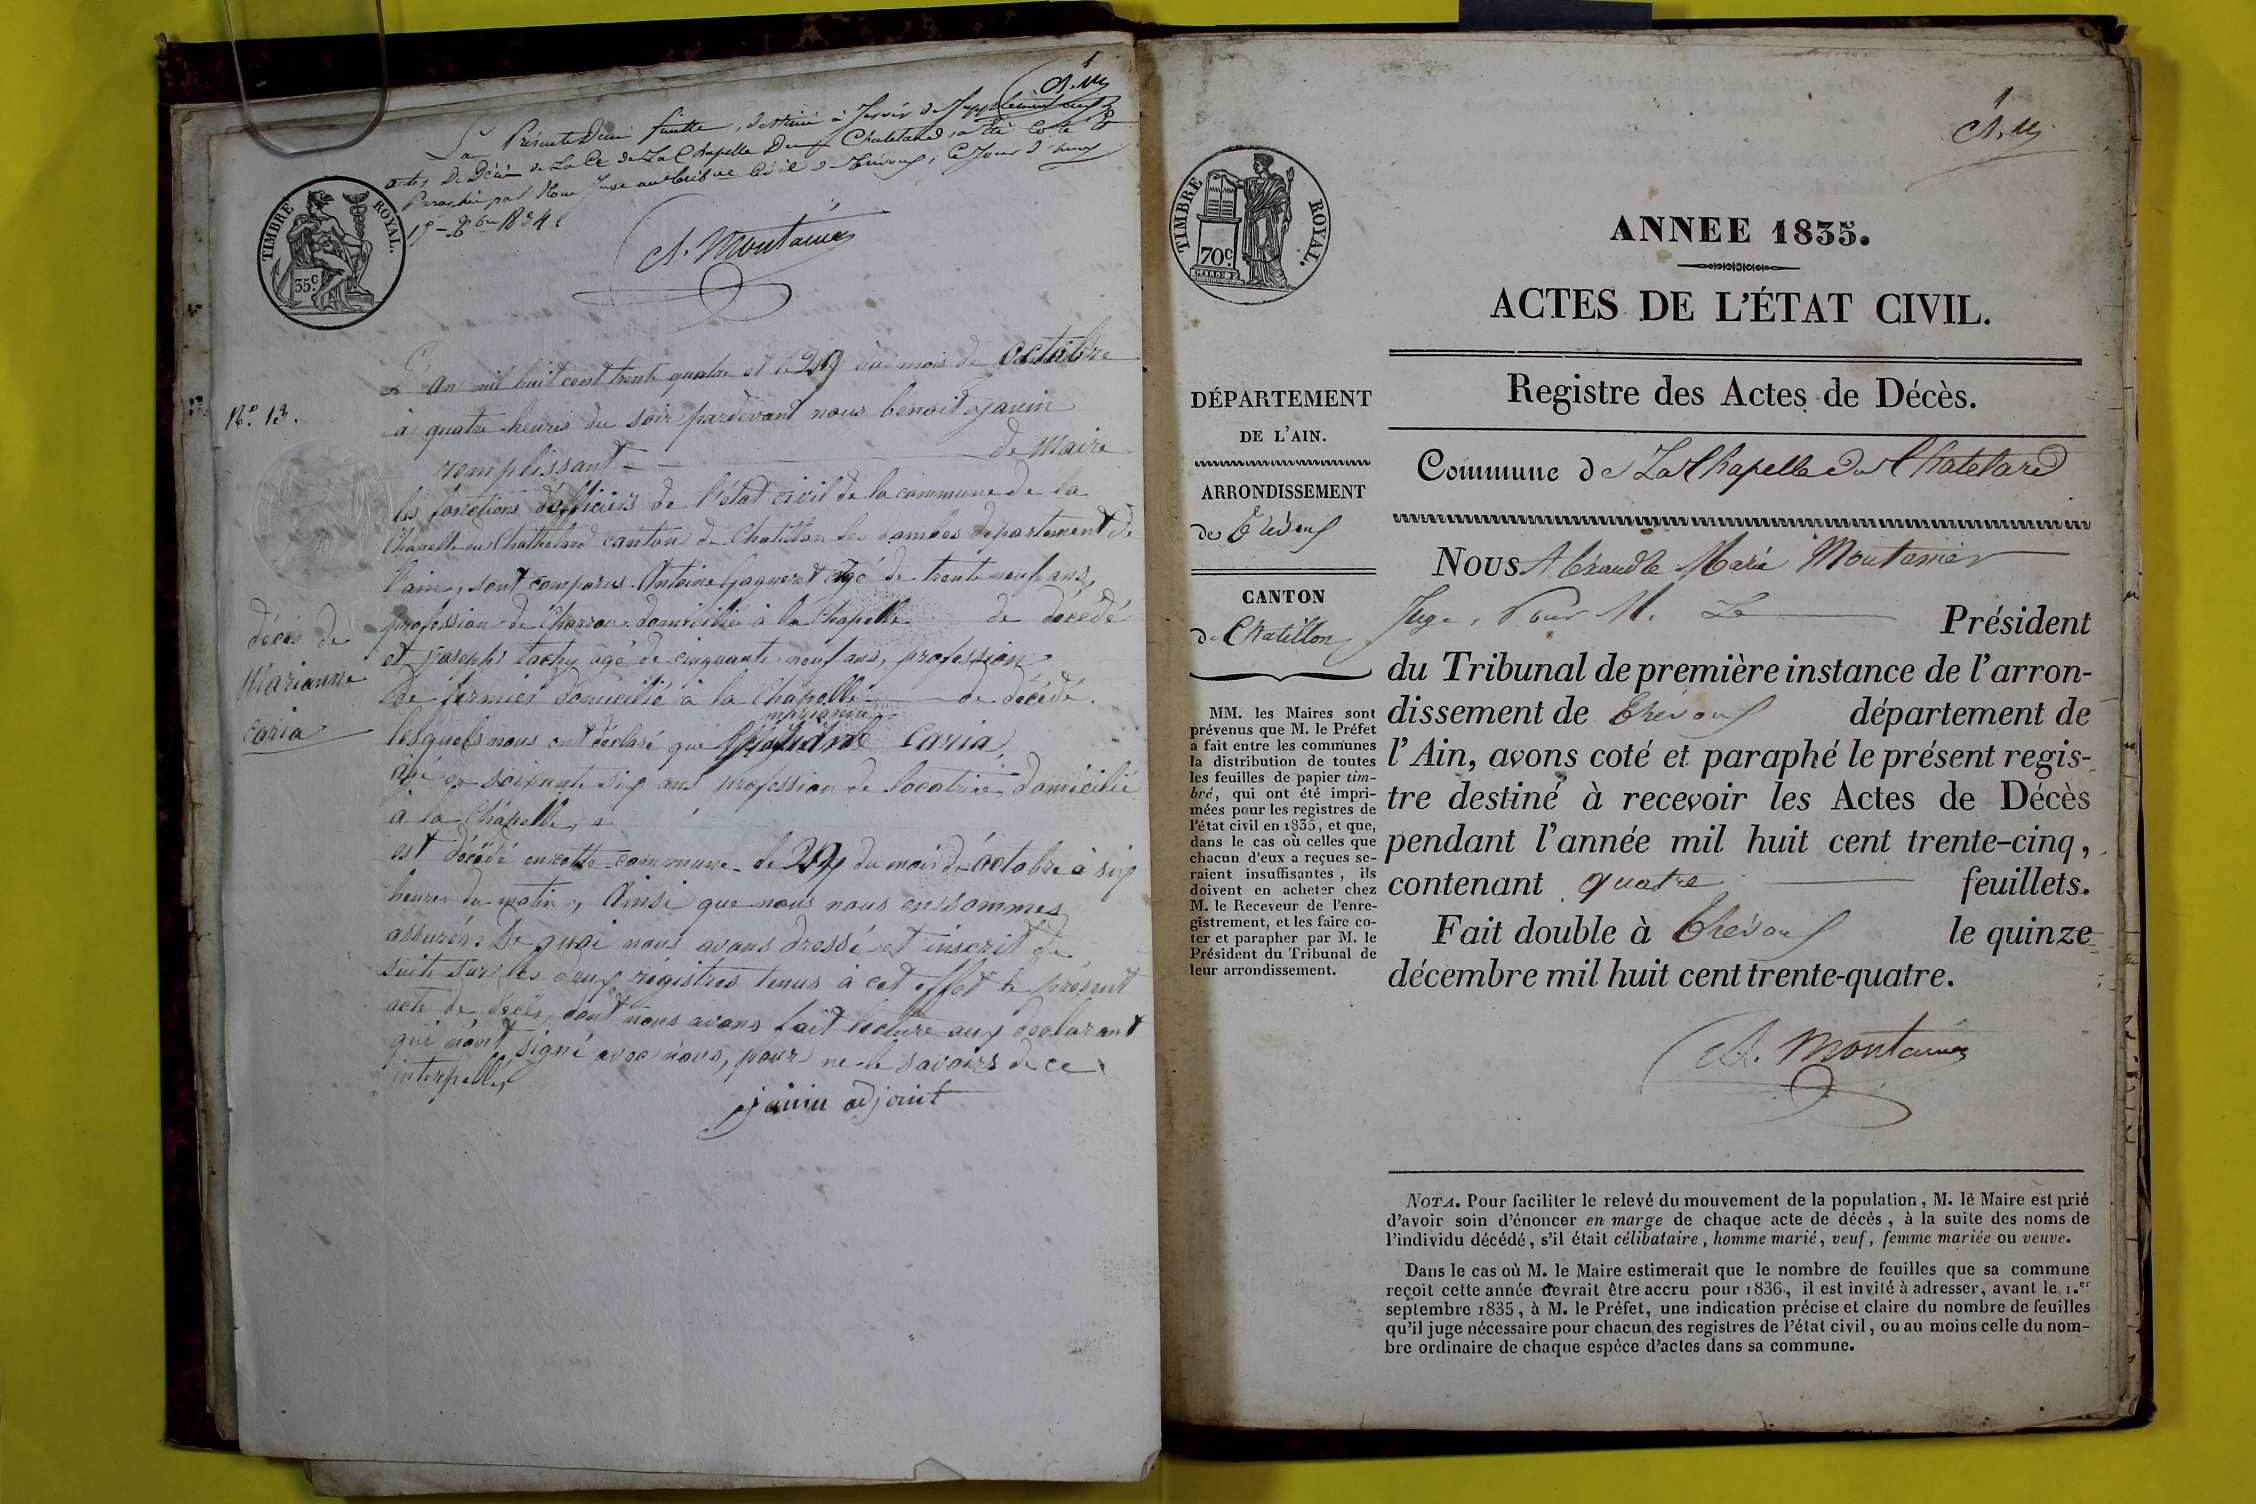 1
A. M.
La Présente Demi feuille, destinée à Servir de Supplément aux
actes De Décès de La Ce de La Chapelle Du Chatelard, a été Coté &
Paraphée par Nous Juge au tribunal Civil de Trévoux, Ce Jour d'huy
15 - Xbre 1834
TIMBRE ROYAL.
35 c.
A. Montanier
L'an mil huit cent trente quatre et le 29 du mois de Octobre
N.o 13.
à quatre heures du soir pardevant nous benoit janin
remplissant de Maire
les fonctions d'officiers de l'état civil de la commune de la
Chapelle du Chathelard canton de Chatillon les dombes departement de
l'ain, sont comparus Antoine Gagneret agé de trente neuf ans,
profession de Charron domicilié à la Chapelle de décédé
et joseph tachy âgé de cinquante neuf ans, profession
de fermier domicilié à la Chapelle de décédé.
décès de
Marianne
caria
marianne
lesquels nous ont déclaré que Caria
agé de soixante six ans profession de locatrice domicilié
à la Chapelle,
est décédé en cette commune le 29 du mois de Octobre à six
heures du matin, Ainsi que nous nous en sommes
assurés. De quoi nous avons dressé et inscrit de
suite sur les deux régistres tenus à cet effet le présent
acte de décès, dont nous avons fait lecture aux declarant
qui n'ont signé avec nous, pour ne le savoirs de ce
interpellés
janin adjoint
1
A. M.
TIMBRE ROYAL.
70 c.
ANNEE 1835.
ACTES DE L'ÉTAT CIVIL.
Registre des Actes de Décès.
Commune de La Chapelle du Chatelard
DÉPARTEMENT
DE L'AIN.
ARRONDISSEMENT
de Trévoux
CANTON
de Chatillon
MM. les Maires sont
prévenus que M. le Préfet
a fait entre les communes
la distribution de toutes
les feuilles de papier tim-
bré, qui ont été impri-
mées pour les registres de
l'état civil en 1835, et que,
dans le cas où celles que
chacun d'eux a reçues se-
raient insuffisantes, ils
doivent en acheter chez
M. le Receveur de l'enre-
gistrement, et les faire co-
ter et parapher par M. le
Président du Tribunal de
leur arrondissement.
Nous Alexandre Marie Montanier
Juge, Pour M. Le Président
du Tribunal de première instance de l'arron-
dissement de Trévoux département de
l'Ain, avons coté et paraphé le présent regis-
tre destiné à recevoir les Actes de Décès
pendant l'année mil huit cent trente-cinq,
contenant quatre feuillets.
Fait double à Trévoux le quinze
décembre mil huit cent trente-quatre.
A. Montanier
NOTA. Pour faciliter le relevé du mouvement de la population, M. le Maire est prié
d'avoir soin d'énoncer en marge de chaque acte de décès, à la suite des noms de
l'individu décédé, s'il était célibataire, homme marié, veuf, femme mariée ou veuve.
Dans le cas où M. le Maire estimerait que le nombre de feuilles que sa commune
reçoit cette année devrait être accru pour 1836, il est invité à adresser, avant le 1.er
septembre 1835, à M. le Préfet, une indication précise et claire du nombre de feuilles
qu'il juge nécessaire pour chacun des registres de l'état civil, ou au moins celle du nom-
bre ordinaire de chaque espèce d'actes dans sa commune.